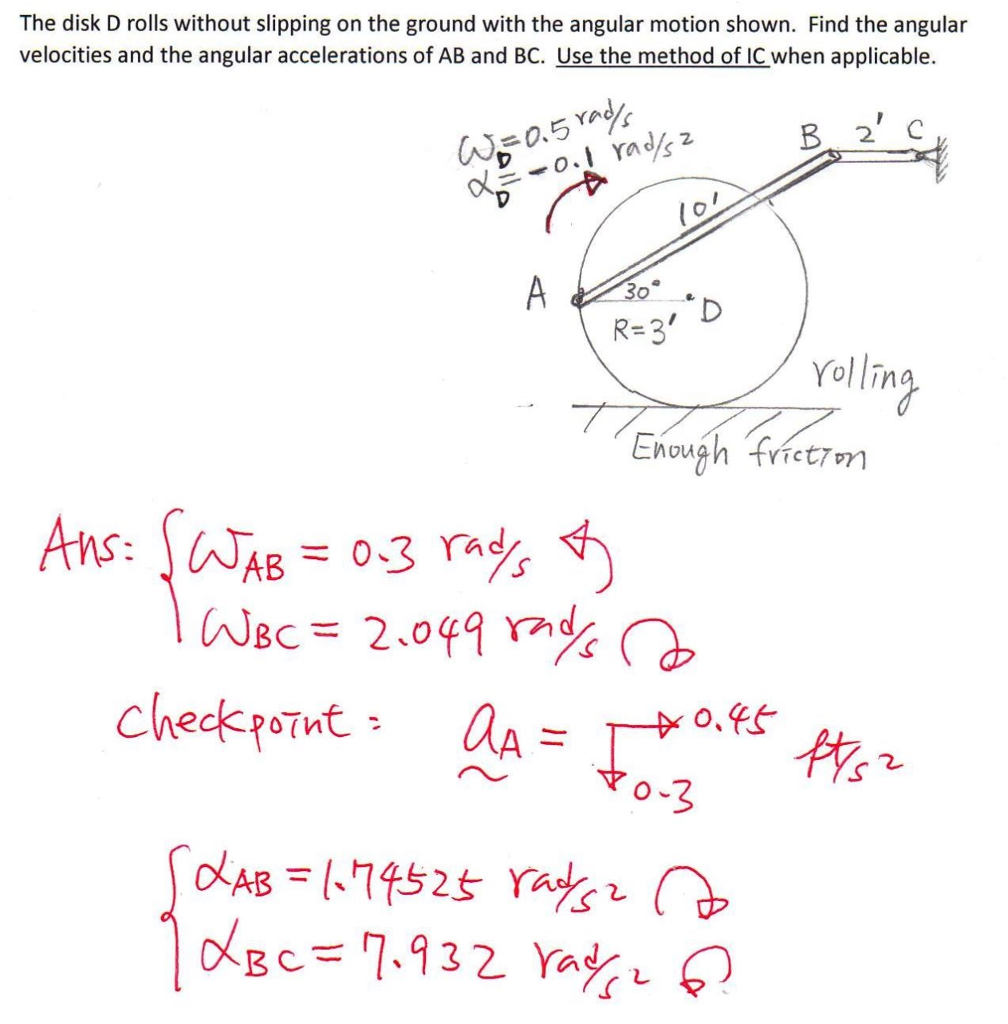 The disk D rolls without slipping on the ground with the angular motion shown. Find the angular
velocities and the angular accelerations of AB and BC. Use the method of IC when applicable.
ω_D=0.5 rad/s
α_D=-0.1 rad/s²
B 2' C
10'
A 30° D
R=3'
rolling
Enough friction
Ans: { ω_AB = 0.3 rad/s ↺
ω_BC = 2.049 rad/s ↻
checkpoint: a_A = → 0.45 ft/s²
↓ 0.3
{ α_AB = 1.74525 rad/s² ↻
α_BC = 7.932 rad/s² ↺